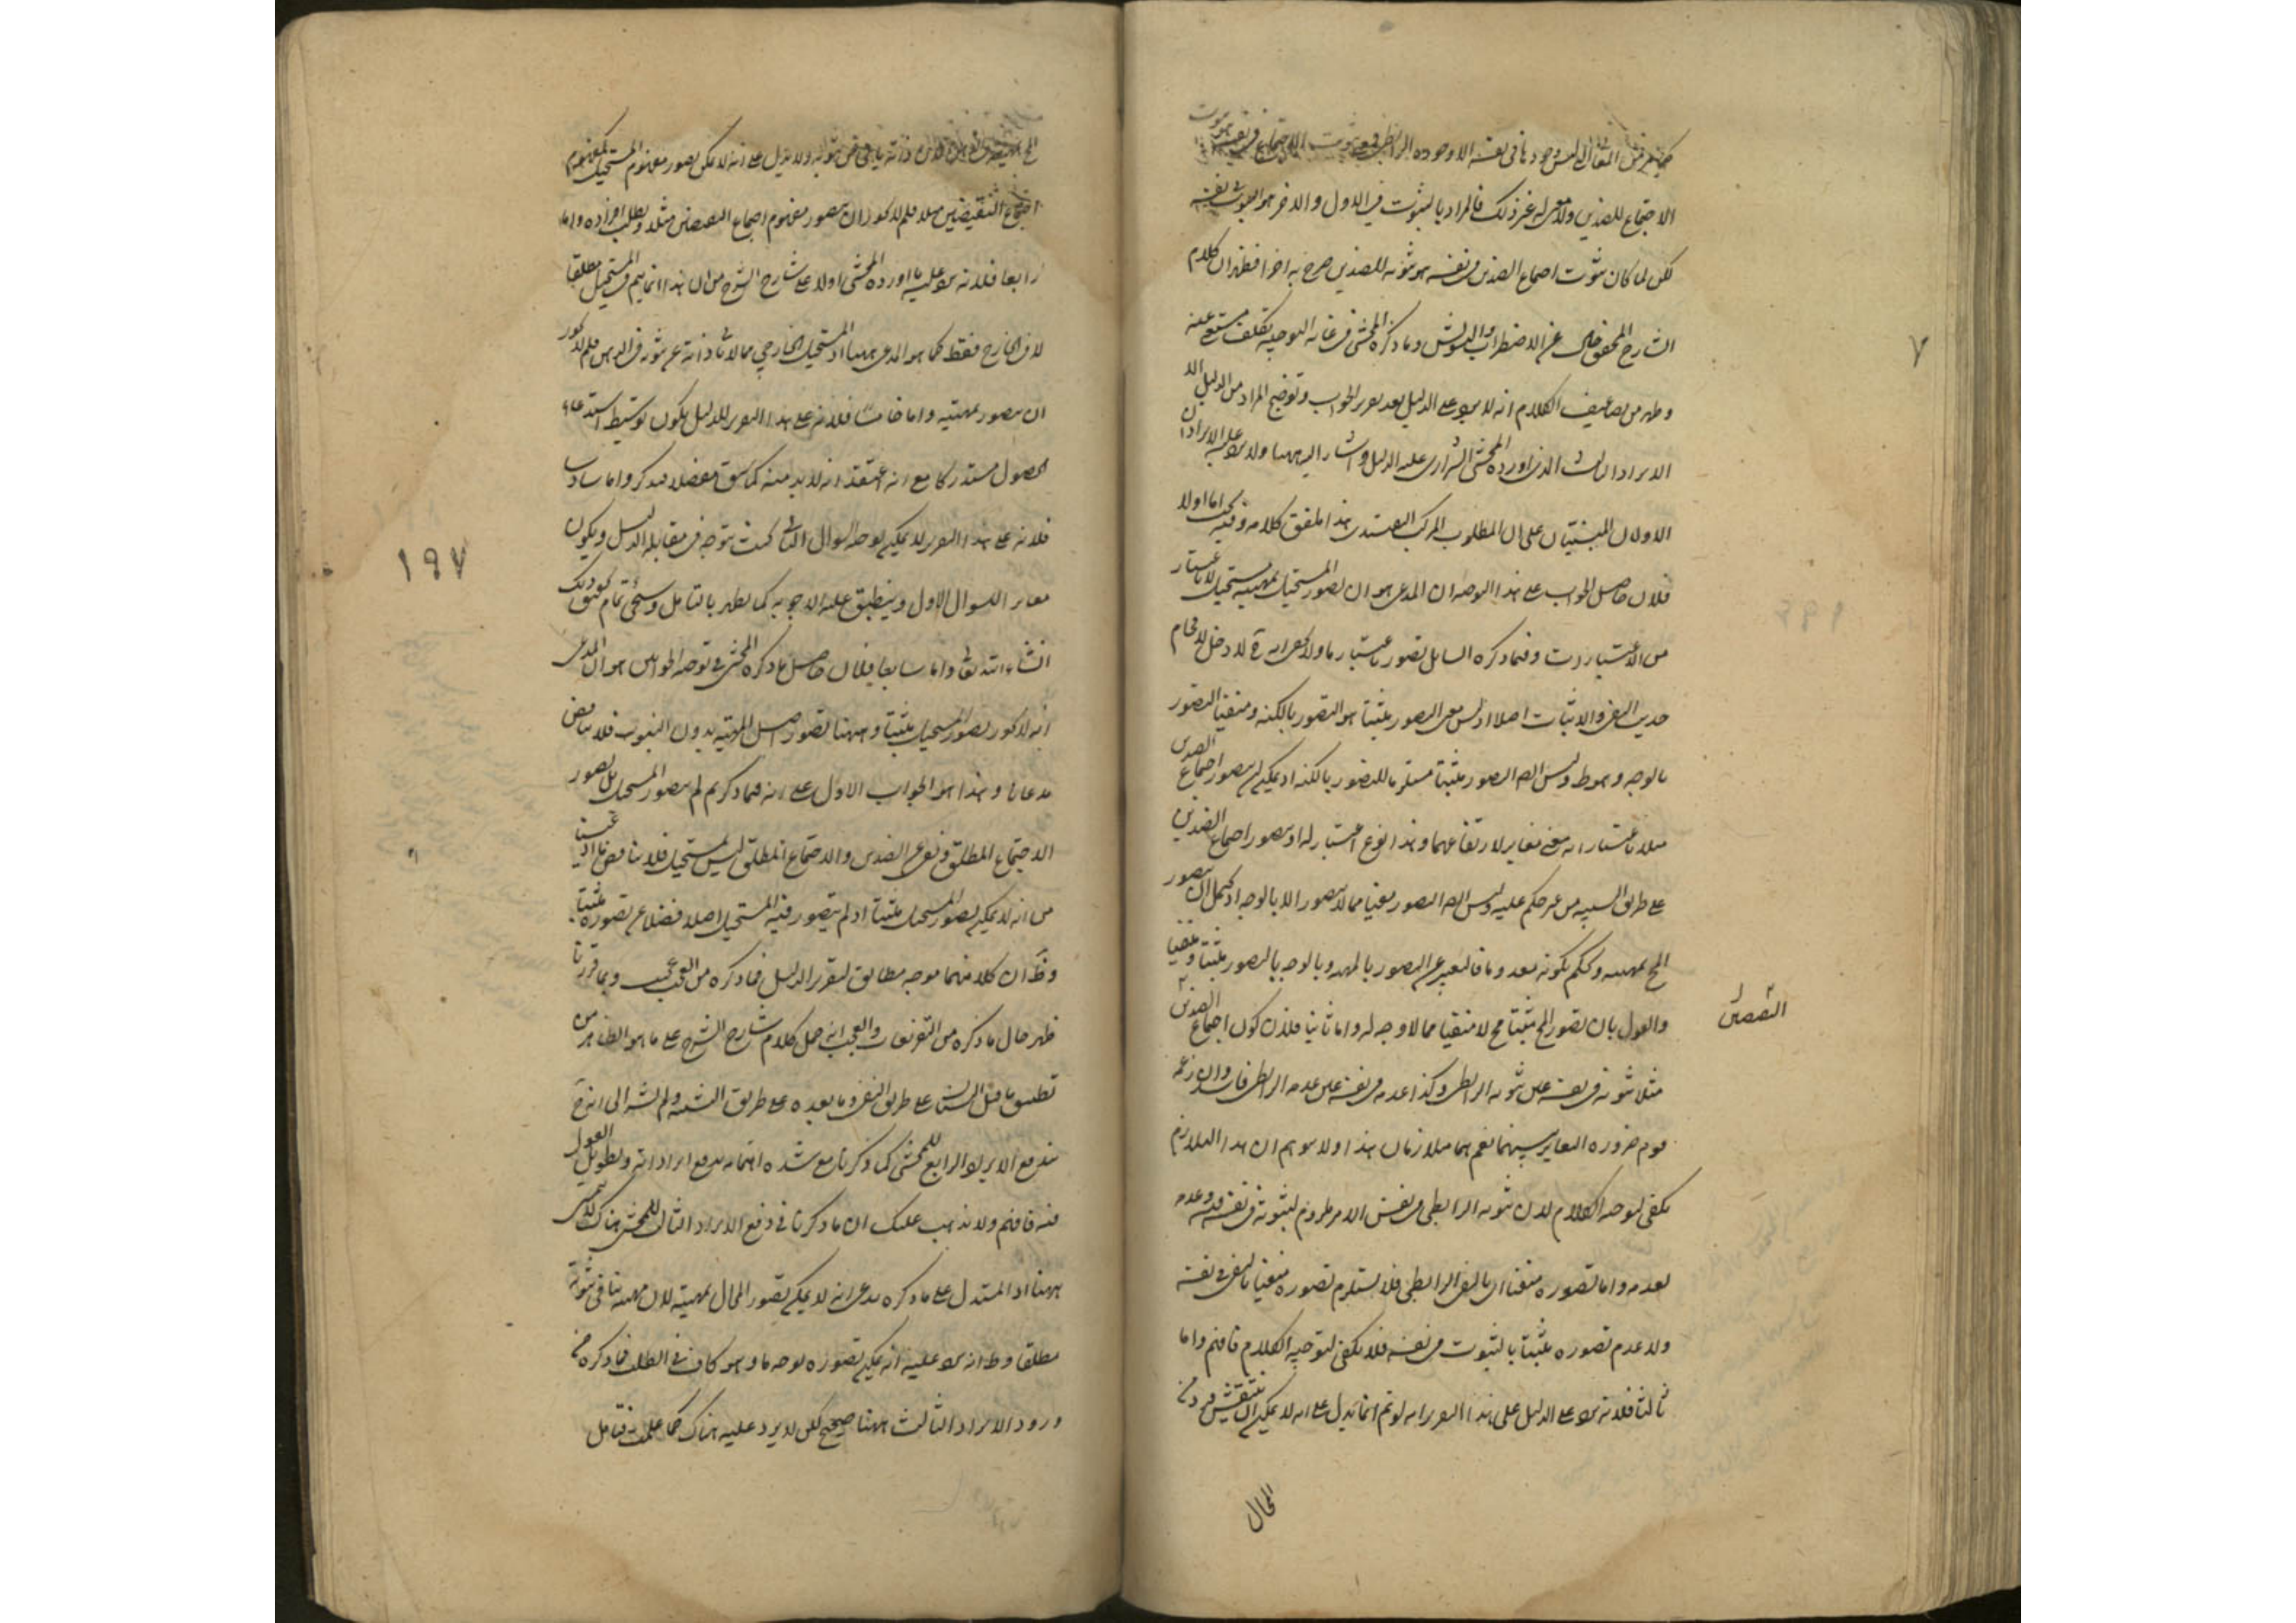 المقال ليس وجودها في نفسه الا وجوده الرابطي
الاجتماع للضدين ولا معنى له غير ذلك فالمراد بالثبوت في الاول والاخر هو الثبوت في نفسه
لكن لما كان ثبوت اجتماع الضدين في نفسه هو ثبوته للضدين صرح به اخرا فظهر ان كلام
الشارح المحقق خال عن الاضطراب والتشويش وما ذكره المحشي في غاية التوجيه تكلف مستغنى عنه
وظهر من تضاعيف الكلام انه لا يرد على الدليل بعد تحرير الجواب وتوضيح المراد من الدليل الا
الايراد الثالث الذي اورده المحشي الشيرازي على الدليل واشار اليه ههنا ولا يرد عليه الايرادان
الاولان المبنيان على ان المطلوب المركب التصديق هذا ملفق كلامه وفيه بحث اما اولا
فلان حاصل الجواب على هذا التوجيه ان المدعى هو ان تصور المستحيل بمهيته مستحيل لا باعتبار
من الاعتبارات وفيما ذكره السائل تصور باعتبار ما ولا يخفى انه ح لا دخل لاقحام
حديث النفي والاثبات اصلا اذ ليس معنى التصور مثبتا هو التصور بالكنه ومنفيا التصور
بالوجه وهو ظ وليس ايضا التصور مثبتا مستلزما للتصور بالكنه اذ يمكن ان يتصور اجتماع الضدين
مثلا باعتبار انه معنى مغاير لارتفاعهما وهذا نوع اعتبار له او يتصور اجتماع الضدين
على طريق التشبيه من غير حكم عليه وليس ايضا التصور منفيا مما لا يتصور الا بالوجه اذ يحتمل ان يتصور
المح بمهيته ويحكم بكونه معدوما فالتعبير عن التصور بالمهية وبالوجه بالتصور مثبتا ومنفيا
والقول بان تصور المح مثبتا مح لا منفيا مما لا وجه له واما ثانيا فلان كون اجتماع الضدين
النقيضين
مثلا ثبوته في نفسه عين ثبوته الرابطي وكذا عدمه في نفسه عين عدمه الرابطي فاسد وان زعمه
قوم ضرورة التغاير بينهما نعم هما متلازمان هذا ولا يتوهم ان هذا التلازم
يكفي لتوجيه الكلام لان ثبوته الرابطي في نفس الامر ملزوم لثبوته في نفسه وعدمه
لعدمه واما تصوره منفيا اي بالنفي الرابطي فلا يستلزم تصوره منفيا بالنفي في نفسه
ولا عدم تصوره مثبتا بالثبوت في نفسه فلا يكفي لتوجيه الكلام فافهم واما
ثالثا فلانه يرد على الدليل على هذا التقرير انه لو تم انما يدل على انه لا يمكن ان
المحال
ذاته ينافي ثبوته ولا يدل على انه لا يمكن تصور مفهوم المستحيل كمفهوم
اجتماع النقيضين مثلا فلم لا يجوز ان يتصور مفهوم اجتماع النقيضين مثلا ويطلب افراده واما
رابعا فلانه يرد عليه ما اورده المحشي اولا على شارح الشرح من ان هذا انما يتم في المستحيل مطلقا
لا في الخارج فقط كما هو المدعى ههنا اذ المستحيل الخارجي مما لا يأبى ذاته عن ثبوته في الذهن فلم لا يجوز
ان يتصور بمهيته واما خامسا فلانه على هذا التقرير للدليل يكون توسيط استدعاء
الحصول مستدركا مع انه اعتقد انه لا بد منه كما سبق مفصلا فتذكر واما سادسا
فلانه على هذا التقرير لا يمكن توجيه السؤال الثاني بحيث يتوجه في مقابلة الدليل ويكون
مغايرا للسؤال الاول وينطبق عليه الاجوبة كما يظهر بالتامل وسيجئ تمام تحقيق ذلك
۱۹۷
انشاء الله تعالى واما سابعا فلان حاصل ما ذكره المحشي في توجيه الجوابين هو ان المدعى
انه لا يجوز تصور المستحيل مثبتا وههنا تصور اصل المهية بدون الثبوت فلا يناقض
مدعانا وهذا هو الجواب الاول على انه فيما ذكرتم لم يتصور المستحيل بل تصور
الاجتماع المطلق ونفي عن الضدين والاجتماع المطلق ليس بمستحيل فلا يناقض ما ادعينا
من انه لا يمكن تصور المستحيل مثبتا اذ لم يتصور فيه المستحيل اصلا فضلا عن تصوره مثبتا
وظ ان كلا منهما موجه مطابق لتقرير الدليل فما ذكره من العجب عجيب وبما قررنا
ظهر حال ما ذكره من التفريعات والعجب انه حمل كلام شارح الشرح على ما هو الظاهر من
تطبيق ما قبل على طريق النفي وما بعده على طريق التشبيه ولم يشر الى انه ح
يندفع الايراد الرابع للمحشي كما ذكرنا مع شدة اهتمامه بدفع ايراداته وتطويل القول
فيه فافهم ولا يذهب عليك ان ما ذكرنا في دفع الايراد الثالث للمحشي هناك ليس
ههنا اذ المستدل على ما ذكره يدعى انه لا يمكن تصور المحال بمهيته لان مهيته ينافي ثبوته
مطلقا وظ انه يرد عليه انه يمكن تصوره بوجه ما وهو كاف في الطلب فما ذكره من
ورود الايراد الثالث ههنا صحيح لكن لا يرد عليه هناك كما علمت فتامل